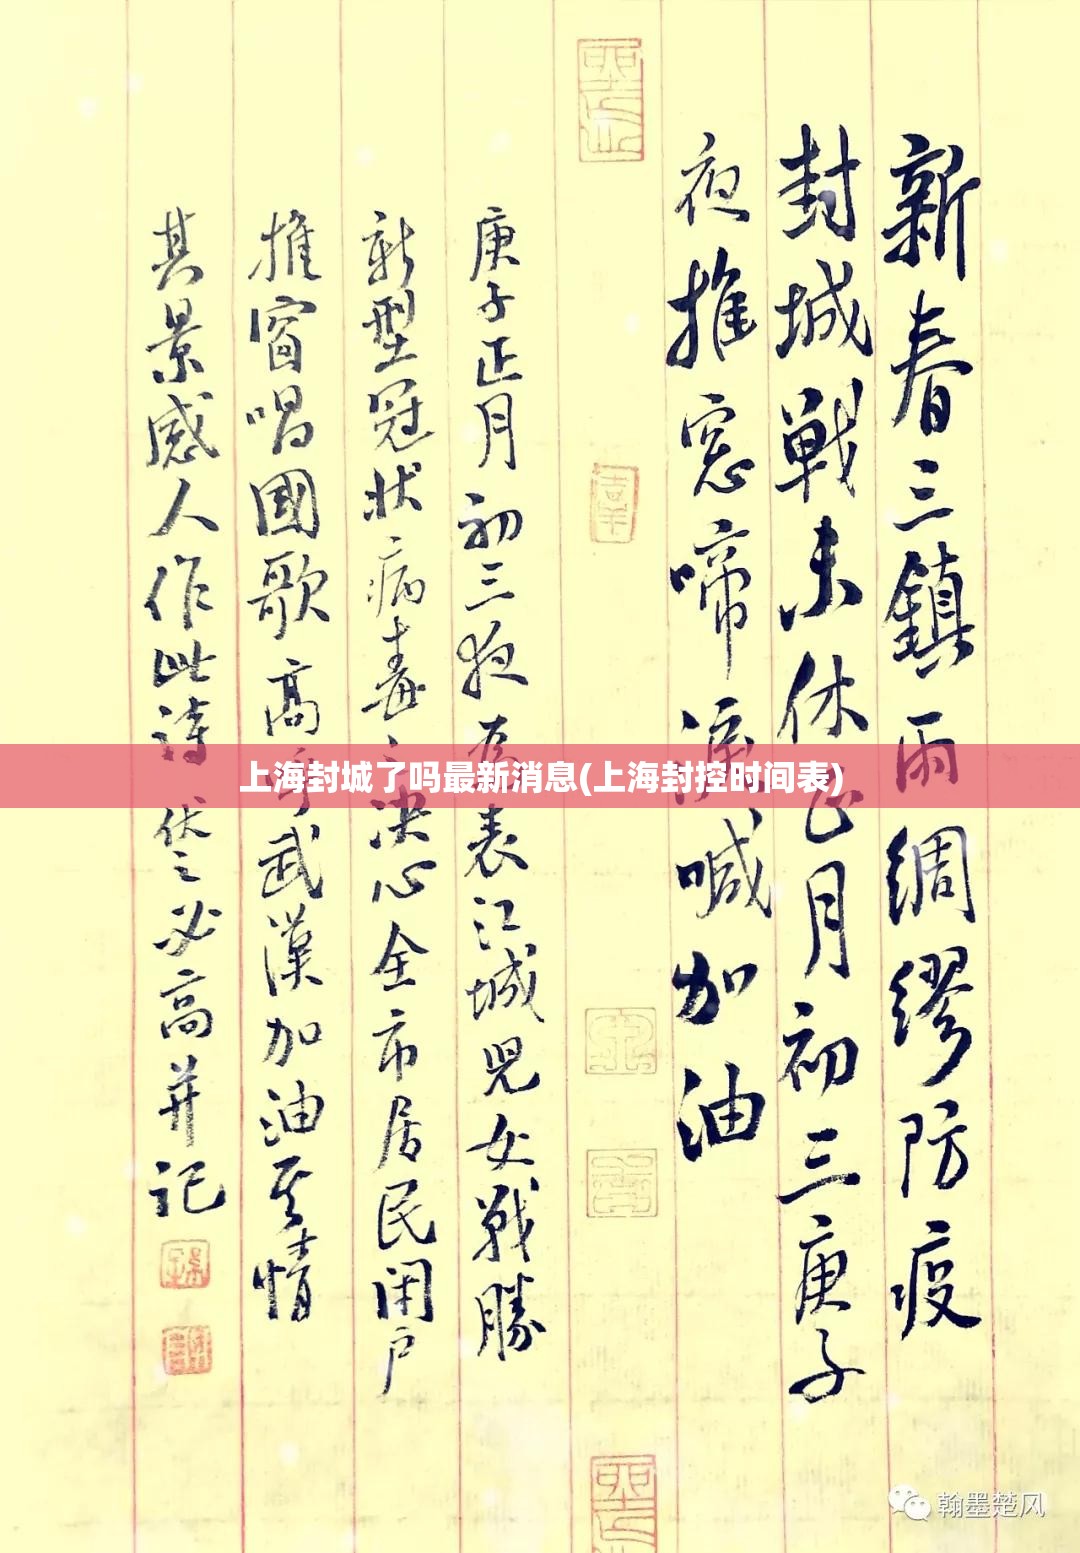 新春三鎮雨綢繆防疫
封城戰未休正月初三庚子
夜推窓啼淚喊加油
庚子正月初三夜為表江城兒女戰勝
新型冠状病毒之决心全市居民闭户
推窗唱國歌高呼武漢加油其情
其景感人作此詩 必高并记
上海封城了吗最新消息(上海封控时间表)
翰墨楚风